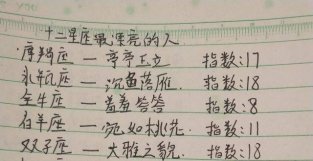 十二星座最漂亮的人
摩羯座 — 亭亭玉立 指数:17
水瓶座 — 沉鱼落雁. 指数:18
金牛座 — 羞羞答答 指数:8
白羊座 — 沉如桃花. 指数:11
双子座 — 大雅之貌. 指数:18